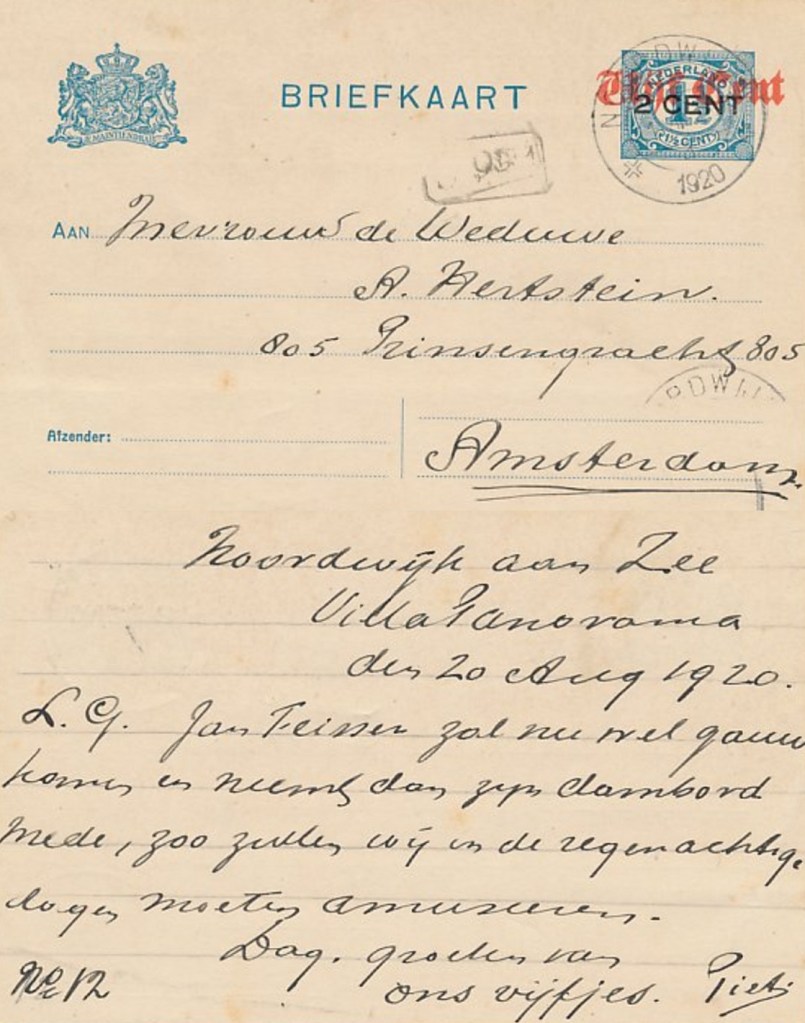 BRIEFKAART
JE MAINTIENDRAI
NEDERLAND
Vijf Cent
2 CENT
1½
(1½ CENT)
1920
AAN Mevrouw de Weduwe
A. Hertstein.
805 Prinsengracht 805
RDWIJ
Afzender:
Amsterdam
Noordwijk aan Zee
Villa Panorama
den 20 Aug 1920.
L. G. Jan Teissen zal nu wel gauw
komen en neemt dan zijn dambord
mede, zoo zullen wij in de regenachtige
dagen moeten amuseeren.
Dag. groeten van
ons vijfjes. Piet.
No 12